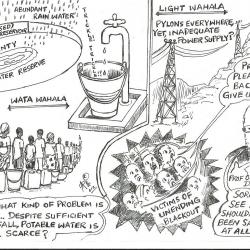 ABUNDANT
RAIN WATER
NTY
TER RESERVE
WATA WAHALA
TRICKLE
LIGHT WAHALA
PYLONS EVERYWHERE
YET, INADEQUATE
POWER SUPPLY?
VICTIMS OF
UNENDING
BLACKOUT
HAT KIND OF PROBLEM IS
DESPITE SUFFICIENT
ALL, POTABLE WATER IS
SCARCE?
P
PLEA
BAC
GIVE U
PROF
SOR
SEE
SHOUL
BEEN S
AT ALL